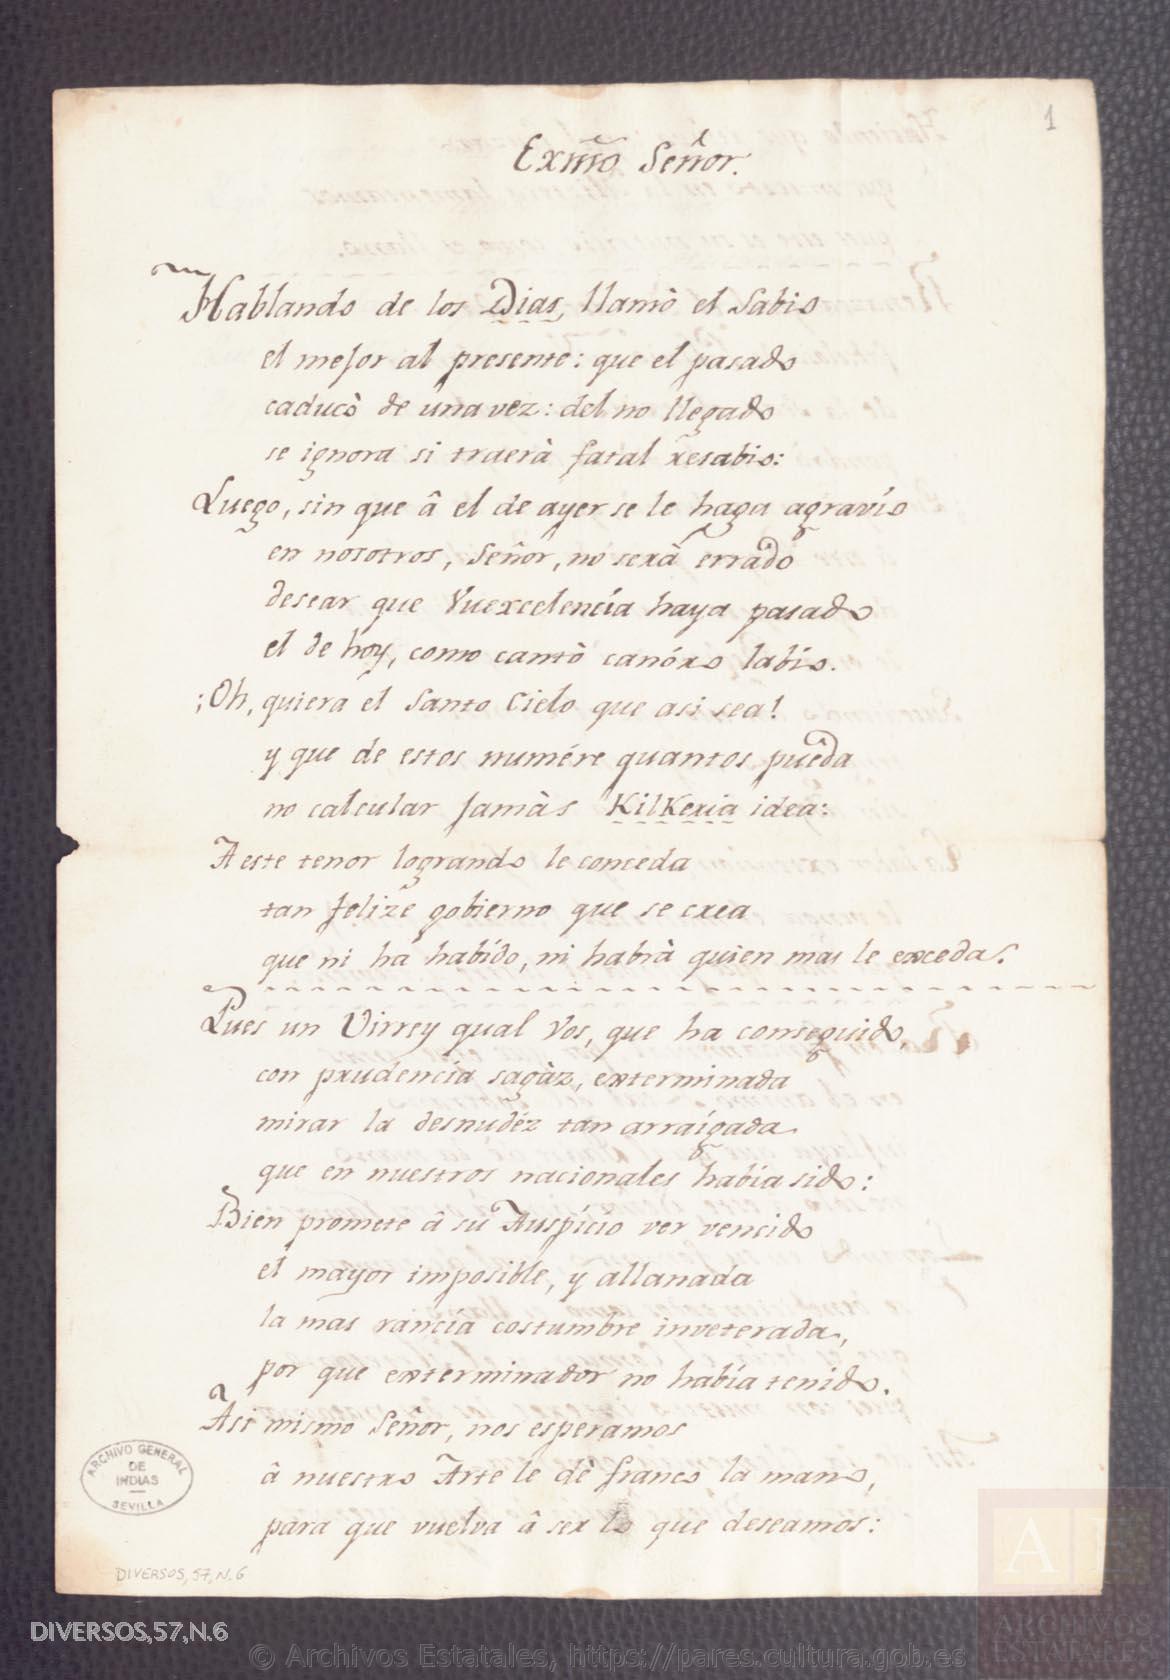 1
Exmo Señor.
Hablando de los Dias, llamò el Sabio
el mejor al presente: que el pasado
caducò de una vez: del no llegado
se ignora si traerà fatal resabio:
Luego, sin que â el de ayer se le haga agravio
en nosotros, Señor, no serà errado
desear que Vuexcelencia haya pasado
el de hoy, como cantò canóro labio.
¡Oh, quiera el Santo Cielo que asi sea!
y que de estos numére quantos pueda
no calcular jamàs Kilkeria idea:
A este tenor logrando le conceda
tan felize gobierno que se crea
que ni ha habido, ni habrà quien mas le exceda.
Pues un Virrey qual Vos, que ha conseguido,
con prudencia sagàz, exterminada
mirar la desnudéz tan arraígada
que en nuestros nacionales habia sido:
Bien promete â su Auspicio ver vencido
el mayor imposible, y allanada
la mas rancia costumbre inveterada,
por que exterminador no habia tenido.
Asi mismo Señor, nos esperamos
â nuestro Arte le dè franco la mano,
para que vuelva â ser lo que deseamos:
ARCHIVO GENERAL
DE
INDIAS
SEVILLA
DIVERSOS, 57, N.6
DIVERSOS,57,N.6
© Archivos Estatales, https://pares.cultura.gob.es
A E
ARCHIVOS
ESTATALES